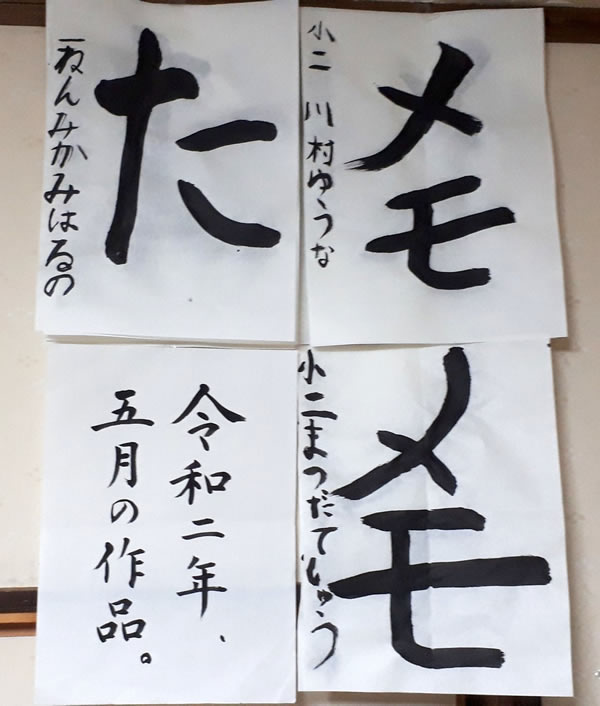 メモ
小二 川村ゆうな
た
一ねんみかみはるの
メモ
小二まつだてしゅう
令和二年、
五月の作品。